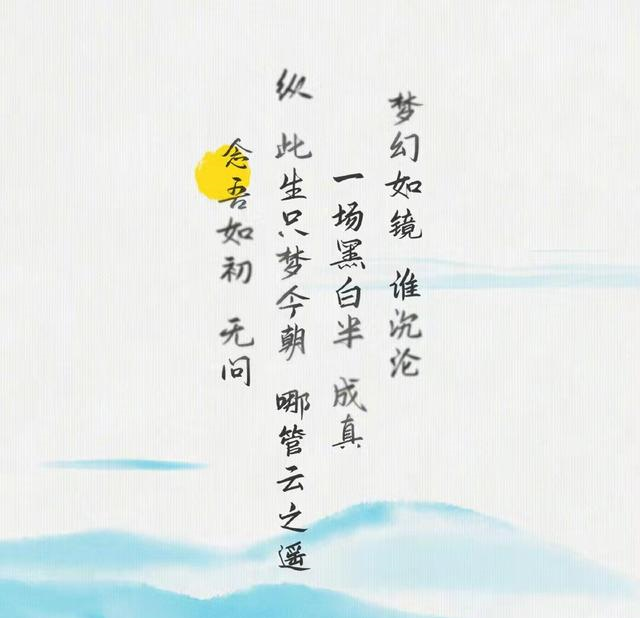 梦幻如镜 谁沉沦
一场黑白半 成真
纵 此生只梦今朝 哪管云之遥
念吾如初 无问